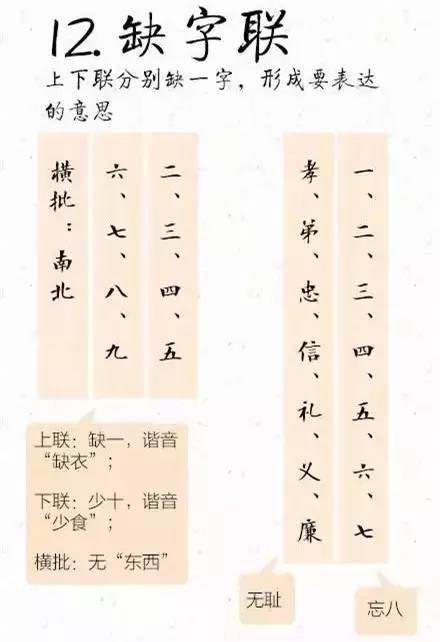 12. 缺字联
上下联分别缺一字，形成要表达
的意思
二、三、四、五
六、七、八、九
横批：南北
上联：缺一，谐音
“缺衣”；
下联：少十，谐音
“少食”；
横批：无“东西”
一、二、三、四、五、六、七
孝、弟、忠、信、礼、义、廉
忘八
无耻